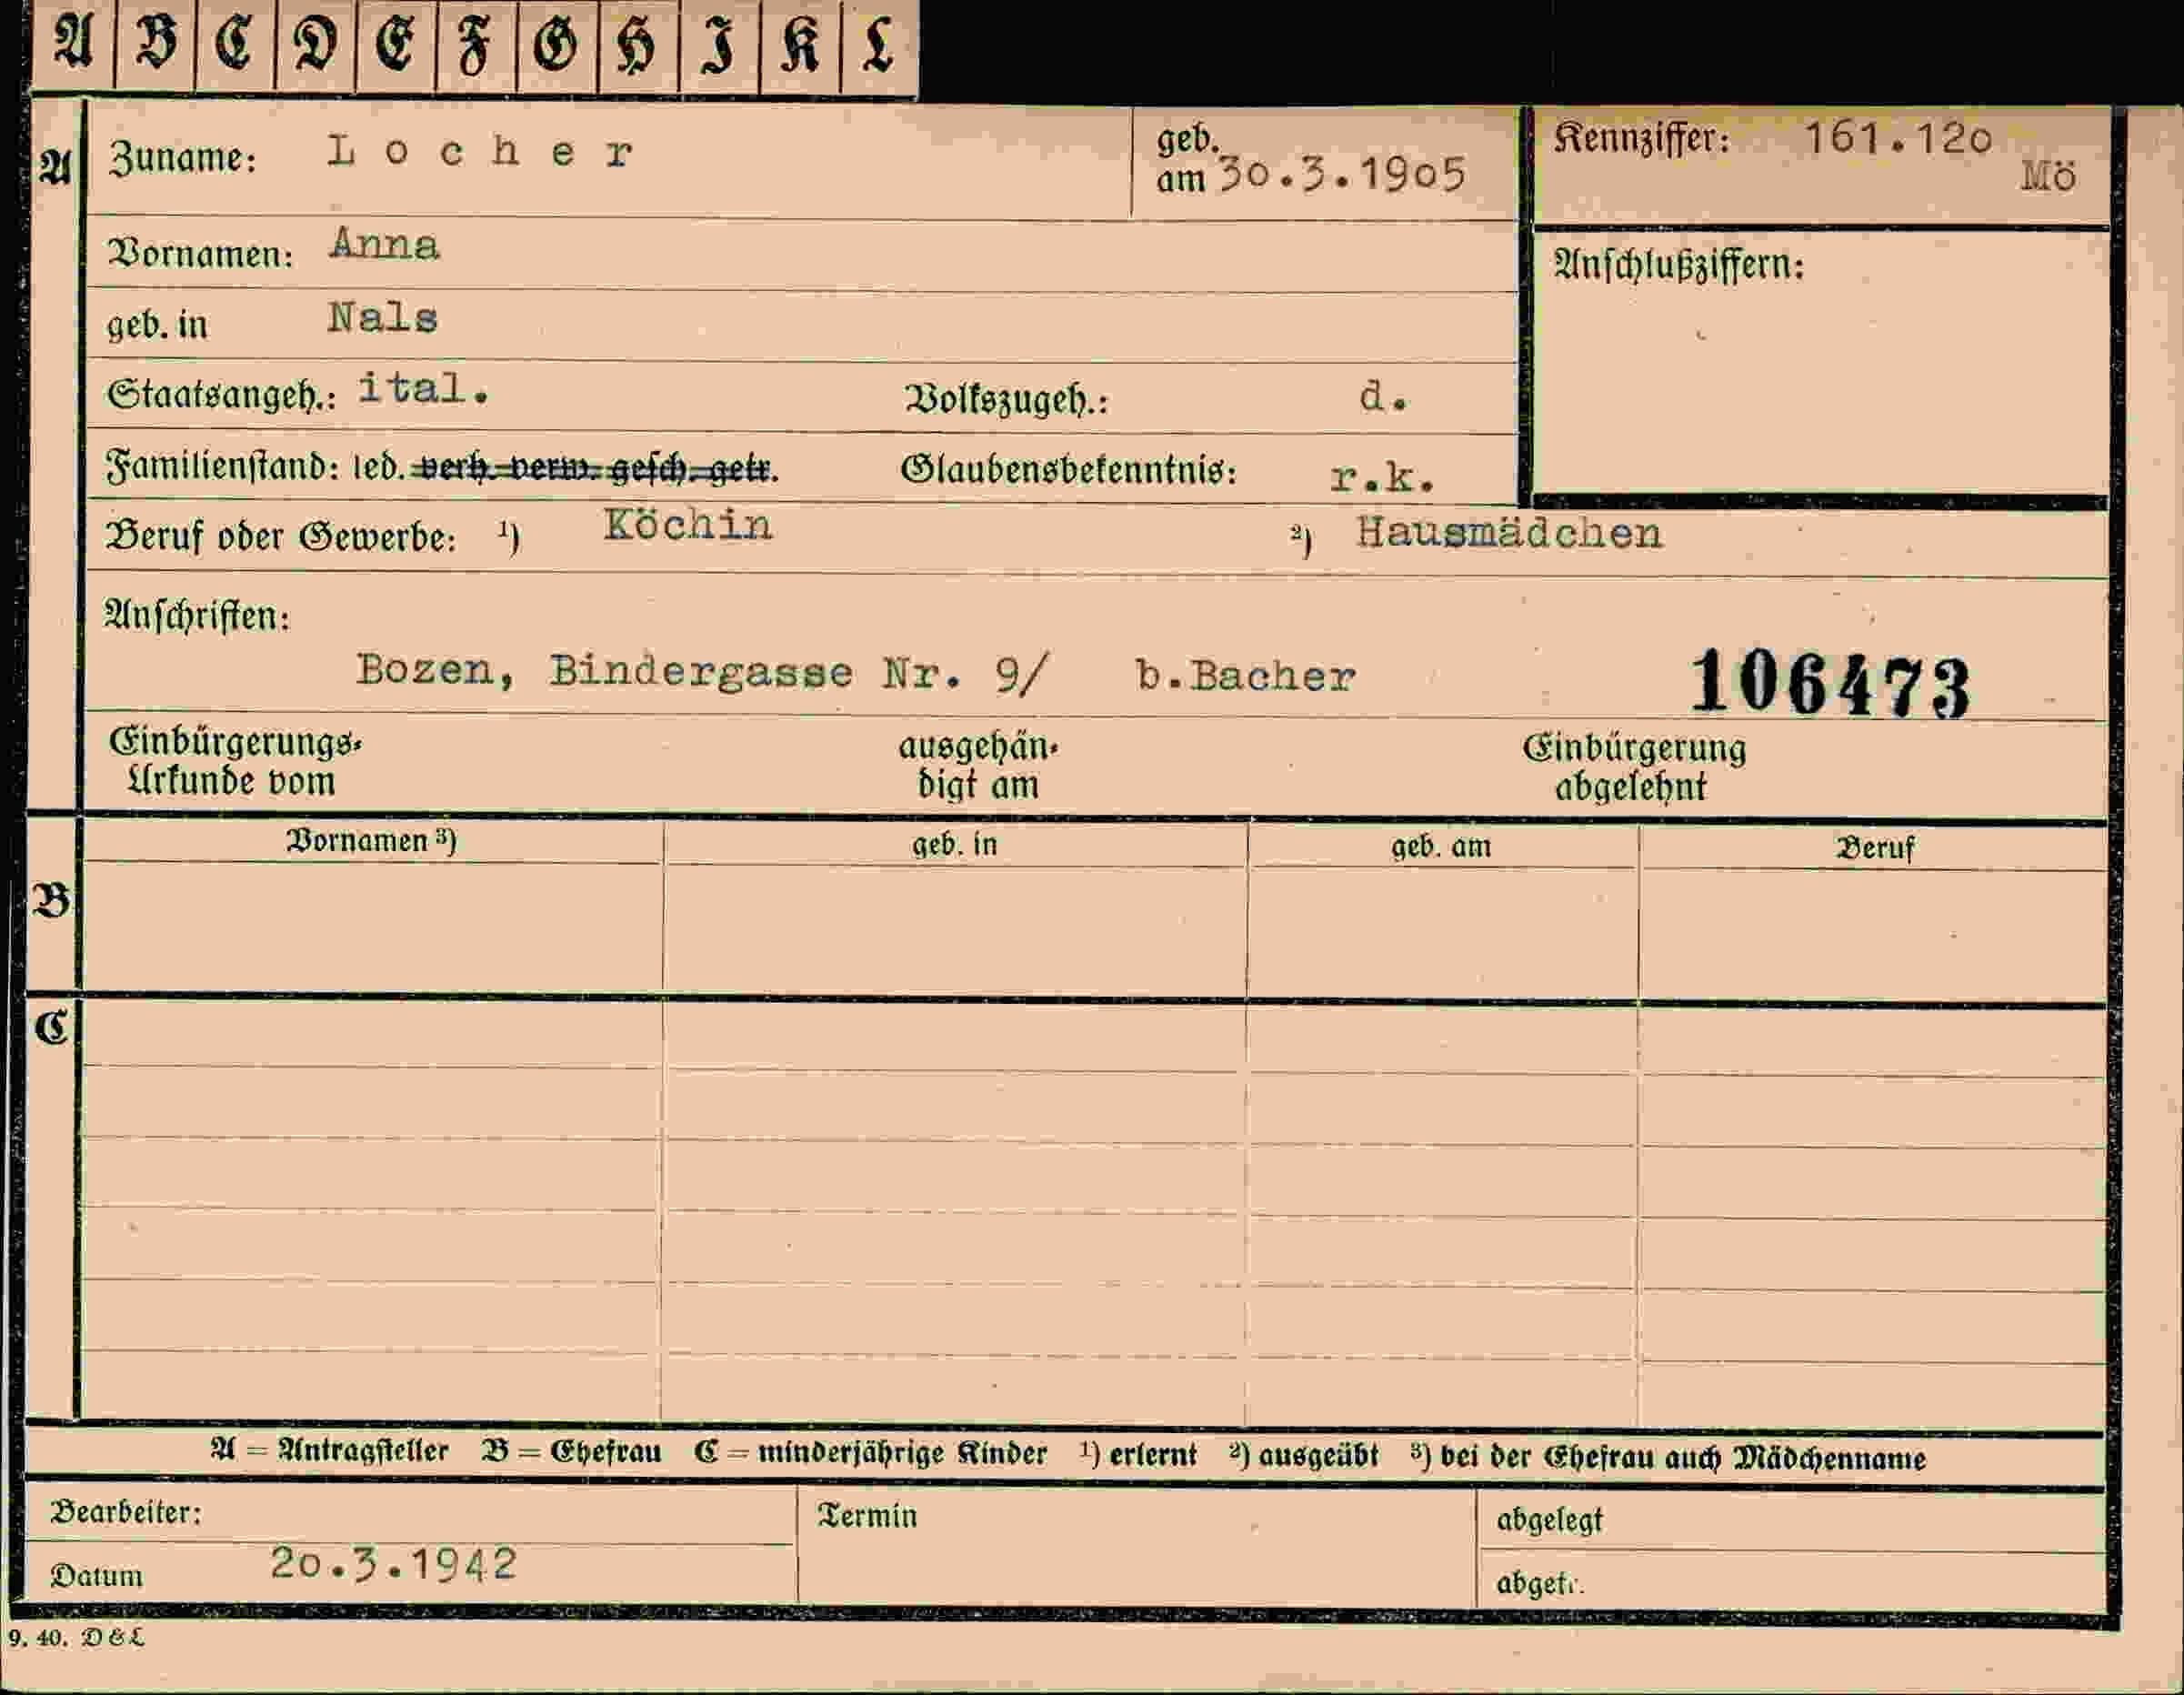 A B C D E F G H I K L
A Zuname: Locher geb. am 30.3.1905 Kennziffer: 161.120 Mö
Vornamen: Anna Anschlußziffern:
geb. in Nals
Staatsangeh.: ital. Volkszugeh.: d.
Familienstand: led. verh. verw. gesch. getr. Glaubensbekenntnis: r.k.
Beruf oder Gewerbe: ¹) Köchin ²) Hausmädchen
Anschriften:
Bozen, Bindergasse Nr. 9/ b.Bacher 106473
Einbürgerungs- ausgehän- Einbürgerung
Urkunde vom digt am abgelehnt
Vornamen ³) geb. in geb. am Beruf
B
C
A = Antragsteller B = Ehefrau C = minderjährige Kinder ¹) erlernt ²) ausgeübt ³) bei der Ehefrau auch Mädchenname
Bearbeiter: Termin abgelegt
Datum 20.3.1942 abgetr.
9. 40. D & L